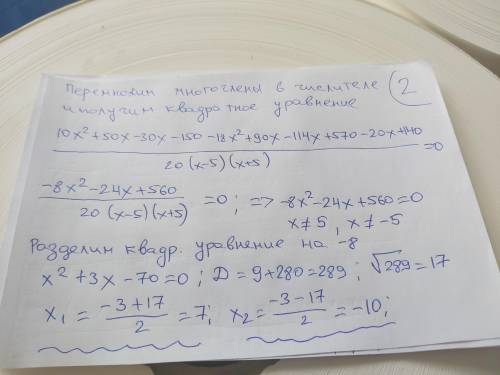 Перемножим многочлены в числителе 2
и получим квадратное уравнение
10x²+50x-30x-150-18x²+90x-114x+570-20x+140
20(x-5)(x+5) =0
-8x²-24x+560
20(x-5)(x+5) =0; => -8x²-24x+560=0
x≠5, x≠-5
Разделим квадр. уравнение на -8
x²+3x-70=0; D=9+280=289; √289=17
x₁ = -3+17/2 = 7; x₂ = -3-17/2 = -10;